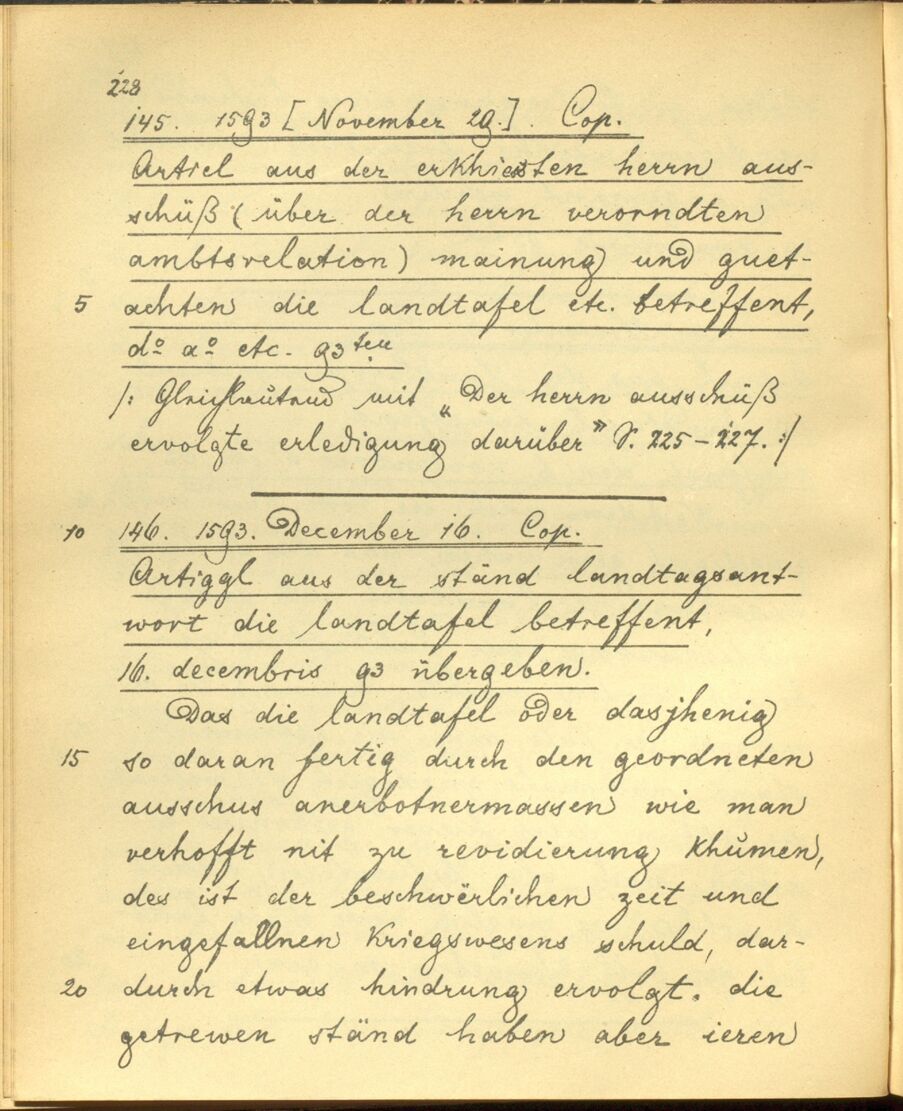 228
145. 1593 [November 29.]. Cop.
Articl aus der erkhiesten herrn aus-
schüß (über der herrn verorndten
ambtsrelation) mainung und guet-
5 achten die landtafel etc. betreffent,
do ao etc. 93ten
/: Gleichlautend mit „Der herrn ausschüß
ervolgte erledigung darüber” S. 225-227. :/
10 146. 1593. December 16. Cop.
Artiggl aus der ständ landtagsant-
wort die landtafel betreffent,
16. decembris 93 übergeben.
Das die landtafel oder dasjhenig
15 so daran fertig durch den geordneten
ausschus anerbotnermassen wie man
verhofft nit zu revidierung khumen,
des ist der beschwërlichen zeit und
eingefallnen kriegswesens schuld, dar-
20 durch etwas hindrung ervolgt. die
getrewen ständ haben aber ieren